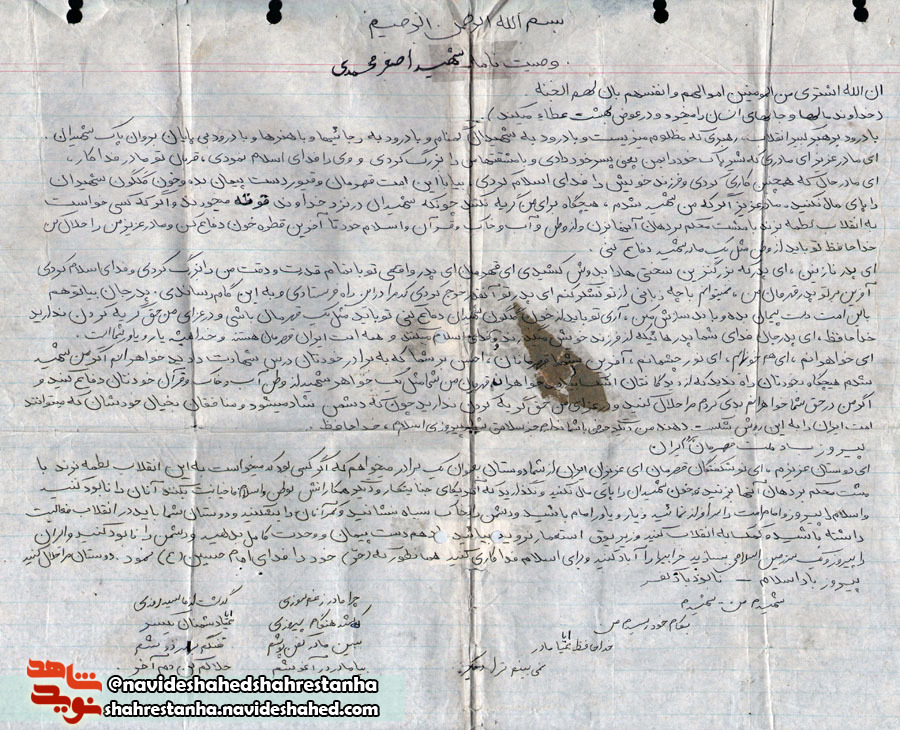 بسم الله الرحمن الرحیم
وصیت نامه شهید اصغر محمدی
ان الله اشتری من المومنین اموالهم وانفسهم بان لهم الجنه
خداوند مالها و جانهای انسان را میخرد و در عوض بهشت عطاء میکند
با درود بر رهبر کبیر انقلاب رهبری که مظلوم میزیست و با درود به شهیدان گمنام و با درود به رجائیها و باهنرها و با درود بی پایان بروان پاک شهیدان
ای مادر عزیز ای مادری که شیر پاک خود را بمن یعنی پسر خود دادی و با مشقتها من را بزرگ کردی و وی را فدای اسلام نمودی، قربان تو مادر فداکار،
ای مادر جان که همچنین کاری کردی و فرزند خویش را فدای اسلام کردی، بیا با این امت قهرمان و غیور دست پیمان بده و خون گلگون شهیدان
را پای مال نکنید، مادر عزیز اگر که من شهید شدم، هیچگاه برای من گریه نکنید چونکه شهیدان در نزد خداوند میخورند و اگر که کسی خواست
به انقلاب لطمه بزند با مشت محکم بر دهان آنها بزن و از وطن و آب و خاک و قرآن و اسلام خود تا آخرین قطره خون دفاع کن و مادر عزیز من را حلال کن
خداحافظ تو باید از وطن مثل یک مادر شهید دفاع کنی
ای پدر نازنین، ای پدر که بزرگترین سختی ها را بدوش کشیدی ای قهرمان ای پدر واقعی تو با تمام قدرت و دقت من را بزرگ کردی و فدای اسلام کردی
آفرین بر تو پدر قهرمان من، نمیدانم با چه زبانی از تو تشکر کنم ای پدر تو آنقدر خرج کردی که مرا در این راه فرستادی و به این گام رساندی، پدر جان بیا تو هم
با این امت دست پیمان بده و با بند سازش من، آری تو باید از خون گلگون شهیدان دفاع کنی تو باید مثل یک قهرمان باشی و در عزای من حق گریه کردن ندارید
خداحافظ، ای پدر جان فدای شما پدرها که از فرزند خویش و همه امت ایران قهرمان هستند و خدا همیشه یار و یاور شما است.
ای خواهرانم، ای خواهرانم، ای نور چشمانم، آفرین بر شما احسن بر شما که به برادر خودتان درس شهادت دادید خواهرانم اگر من شهید
شدم هیچگاه خودتان قهرمان من شما مثل یک خواهر شهید از وطن آب و خاک و قرآن خودتان دفاع کنید و
اگر من در حق شما خواهرانم بدی کردم مرا حلال کنید و در عزای من حق گریه کردن ندارید چون که دشمن شاد میشود و منافقان بخیال خودشان که میتوانند
امت ایران را به این روش شکست دهند من دیگر حرفی با شما ندارم جز سلامتی شما و پیروزی اسلام، خداحافظ.
پیروز باد ملت قهرمان ایران
ای دوستان عزیزم، ای نونهالان قهرمان ای عزیزان ایران از شما دوستان بعنوان یک برادر میخواهم که اگر کسی بود که میخواست به این انقلاب لطمه بزند با
مشت محکم بر دهان آنها بزنید و خون شهیدان را پای مال نکنید و نگذارید که آمریکای جنایتکار و دیگر همکارانش بوطن و اسلام ما خیانت کنند آنان را نابود کنید
و اسلام را پیروز و امام امت را سرافراز نمائید و یار و یاور امام باشید و دشمن را بخاک سیاه بنشانید و دوستان شما باید در انقلاب فعالیت
داشته باشید و کمک به انقلاب کنید و زیر یوق استعمار نروید باهم دست پیمان و وحدت کامل بدهید و دشمن را نابود کنید و ایران
را پیروز و یک سرزمین اسلامی بسازید خرابیها را آباد کنید و برای اسلام فداکاری کنید همانطور که خود را فدای امام حسین (ع) نمود. دوستان مرا حلال کنید
پیروز باد اسلام – نابود باد کفر
شهیدم من شهیدم
بکام خود رسیدم من
خداحافظ شما مادر
چرا مادر ز غم سوزی
که شد هنگام پیروزی
ببین مادر کفن پوشم
حلالم کن دم آخر
شاهد
نوید
@navideshahedshahrestanha
shahrestanha.navideshahed.com